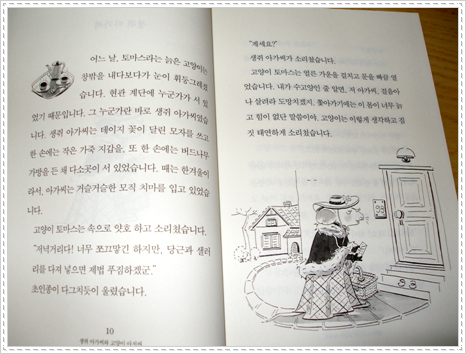 어느 날, 토마스라는 늙은 고양이는
창밖을 내다보다가 눈이 휘둥그래졌
습니다. 현관 계단에 누군가가 서 있
었기 때문입니다. 그 누군가란 바로 생쥐 아가씨였습
니다. 생쥐 아가씨는 데이지 꽃이 달린 모자를 쓰고
한 손에는 작은 가죽 지갑을, 또 한 손에는 버드나무
가방을 든 채 다소곳이 서 있었습니다. 때는 한겨울이
라서, 아가씨는 거슬거슬한 모직 치마를 입고 있었습
니다.
고양이 토마스는 속으로 얏호 하고 소리쳤습니다.
“저녁거리다! 너무 쪼끄맣긴 하지만, 당근과 샐러
리를 다져 넣으면 제법 푸짐하겠군.”
초인종이 다그치듯이 울렸습니다.
10
생쥐 아가씨와 고양이 아저씨
“계세요?”
생쥐 아가씨가 소리쳤습니다.
고양이 토마스는 얼른 가운을 걸치고 문을 빠끔 열
었습니다. 내가 수고양인 줄 알면, 저 아가씨, 걸음아
나 살려라 도망치겠지. 쫓아가기에는 이 몸이 너무 늙
고 힘이 없단 말씀이야. 고양이는 이렇게 생각하고 짐
짓 태연하게 소리쳤습니다.